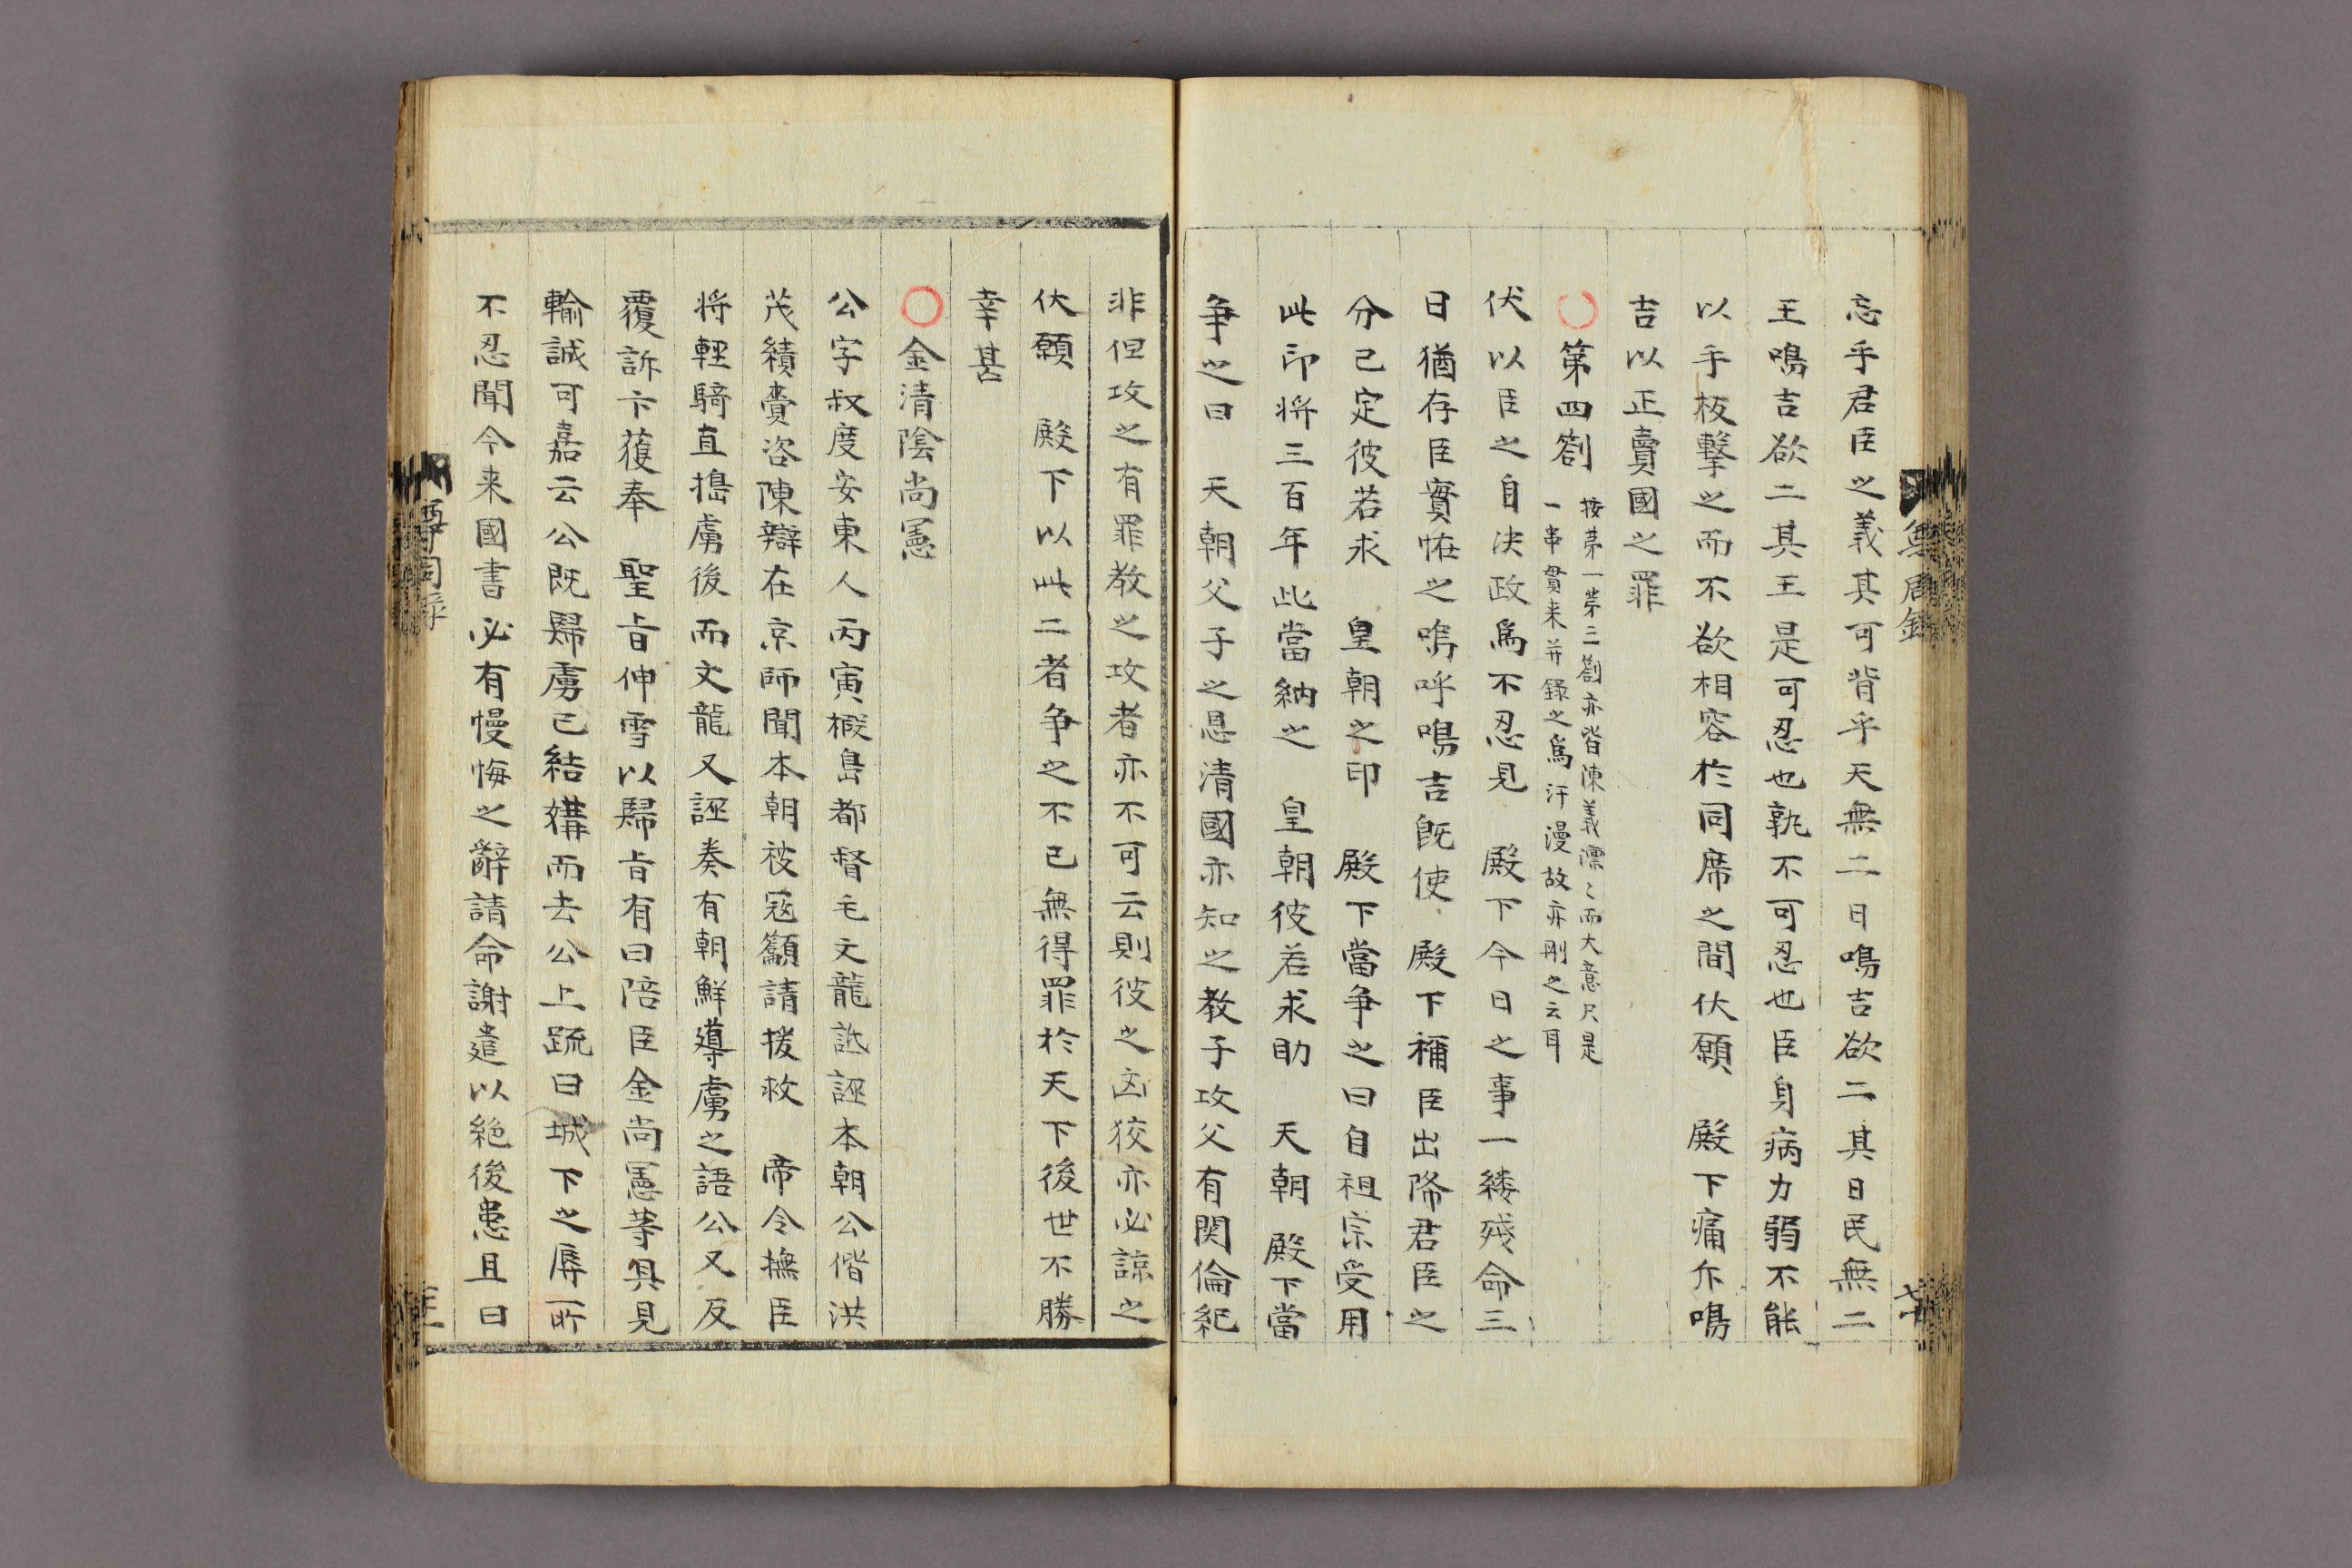 忘乎君臣之義其可背乎天無二日鳴吉欲二其日民無二
王鳴吉欲二其王是可忍也孰不可忍也臣身病力弱不能
以手板擊之而不欲相容於同席之間伏願　殿下痛斥鳴
吉以正賣國之罪
○第四劄
按第一第三劄亦皆陳義凜〻而大意只是
一串貫来并錄之爲汗漫故亦刪之云耳
伏以臣之自决政爲不忍見　殿下今日之事一縷殘命三
日猶存臣實怪之嗚呼鳴吉既使　殿下稱臣出降君臣之
分已定彼若求　皇朝之印　殿下當争之曰自祖宗受用
此印將三百年此當納之　皇朝彼若求助　天朝　殿下當
争之曰　天朝父子之恩清國亦知之教子攻父有関倫紀
非但攻之有罪教之攻者亦不可云則彼之凶狡亦必諒之
伏願　殿下以此二者争之不已無得罪於天下後世不勝
幸甚
○金清陰尚憲
公字叔度安東人丙寅椵島都督毛文龍詆誣本朝公偕洪
茂績賫咨陳辯在京師聞本朝被冦籲請援救　帝令撫臣
将輕騎直搗虜後而文龍又誣奏有朝鮮導虜之語公又反
覆訴卞獲奉　聖旨伸雪以歸旨有曰陪臣金尚憲等具見
輸誠可嘉云公既歸虜已結媾而去公上疏曰城下之辱所
不忍聞今来國書必有慢悔之辭請命謝遣以絶後患且曰